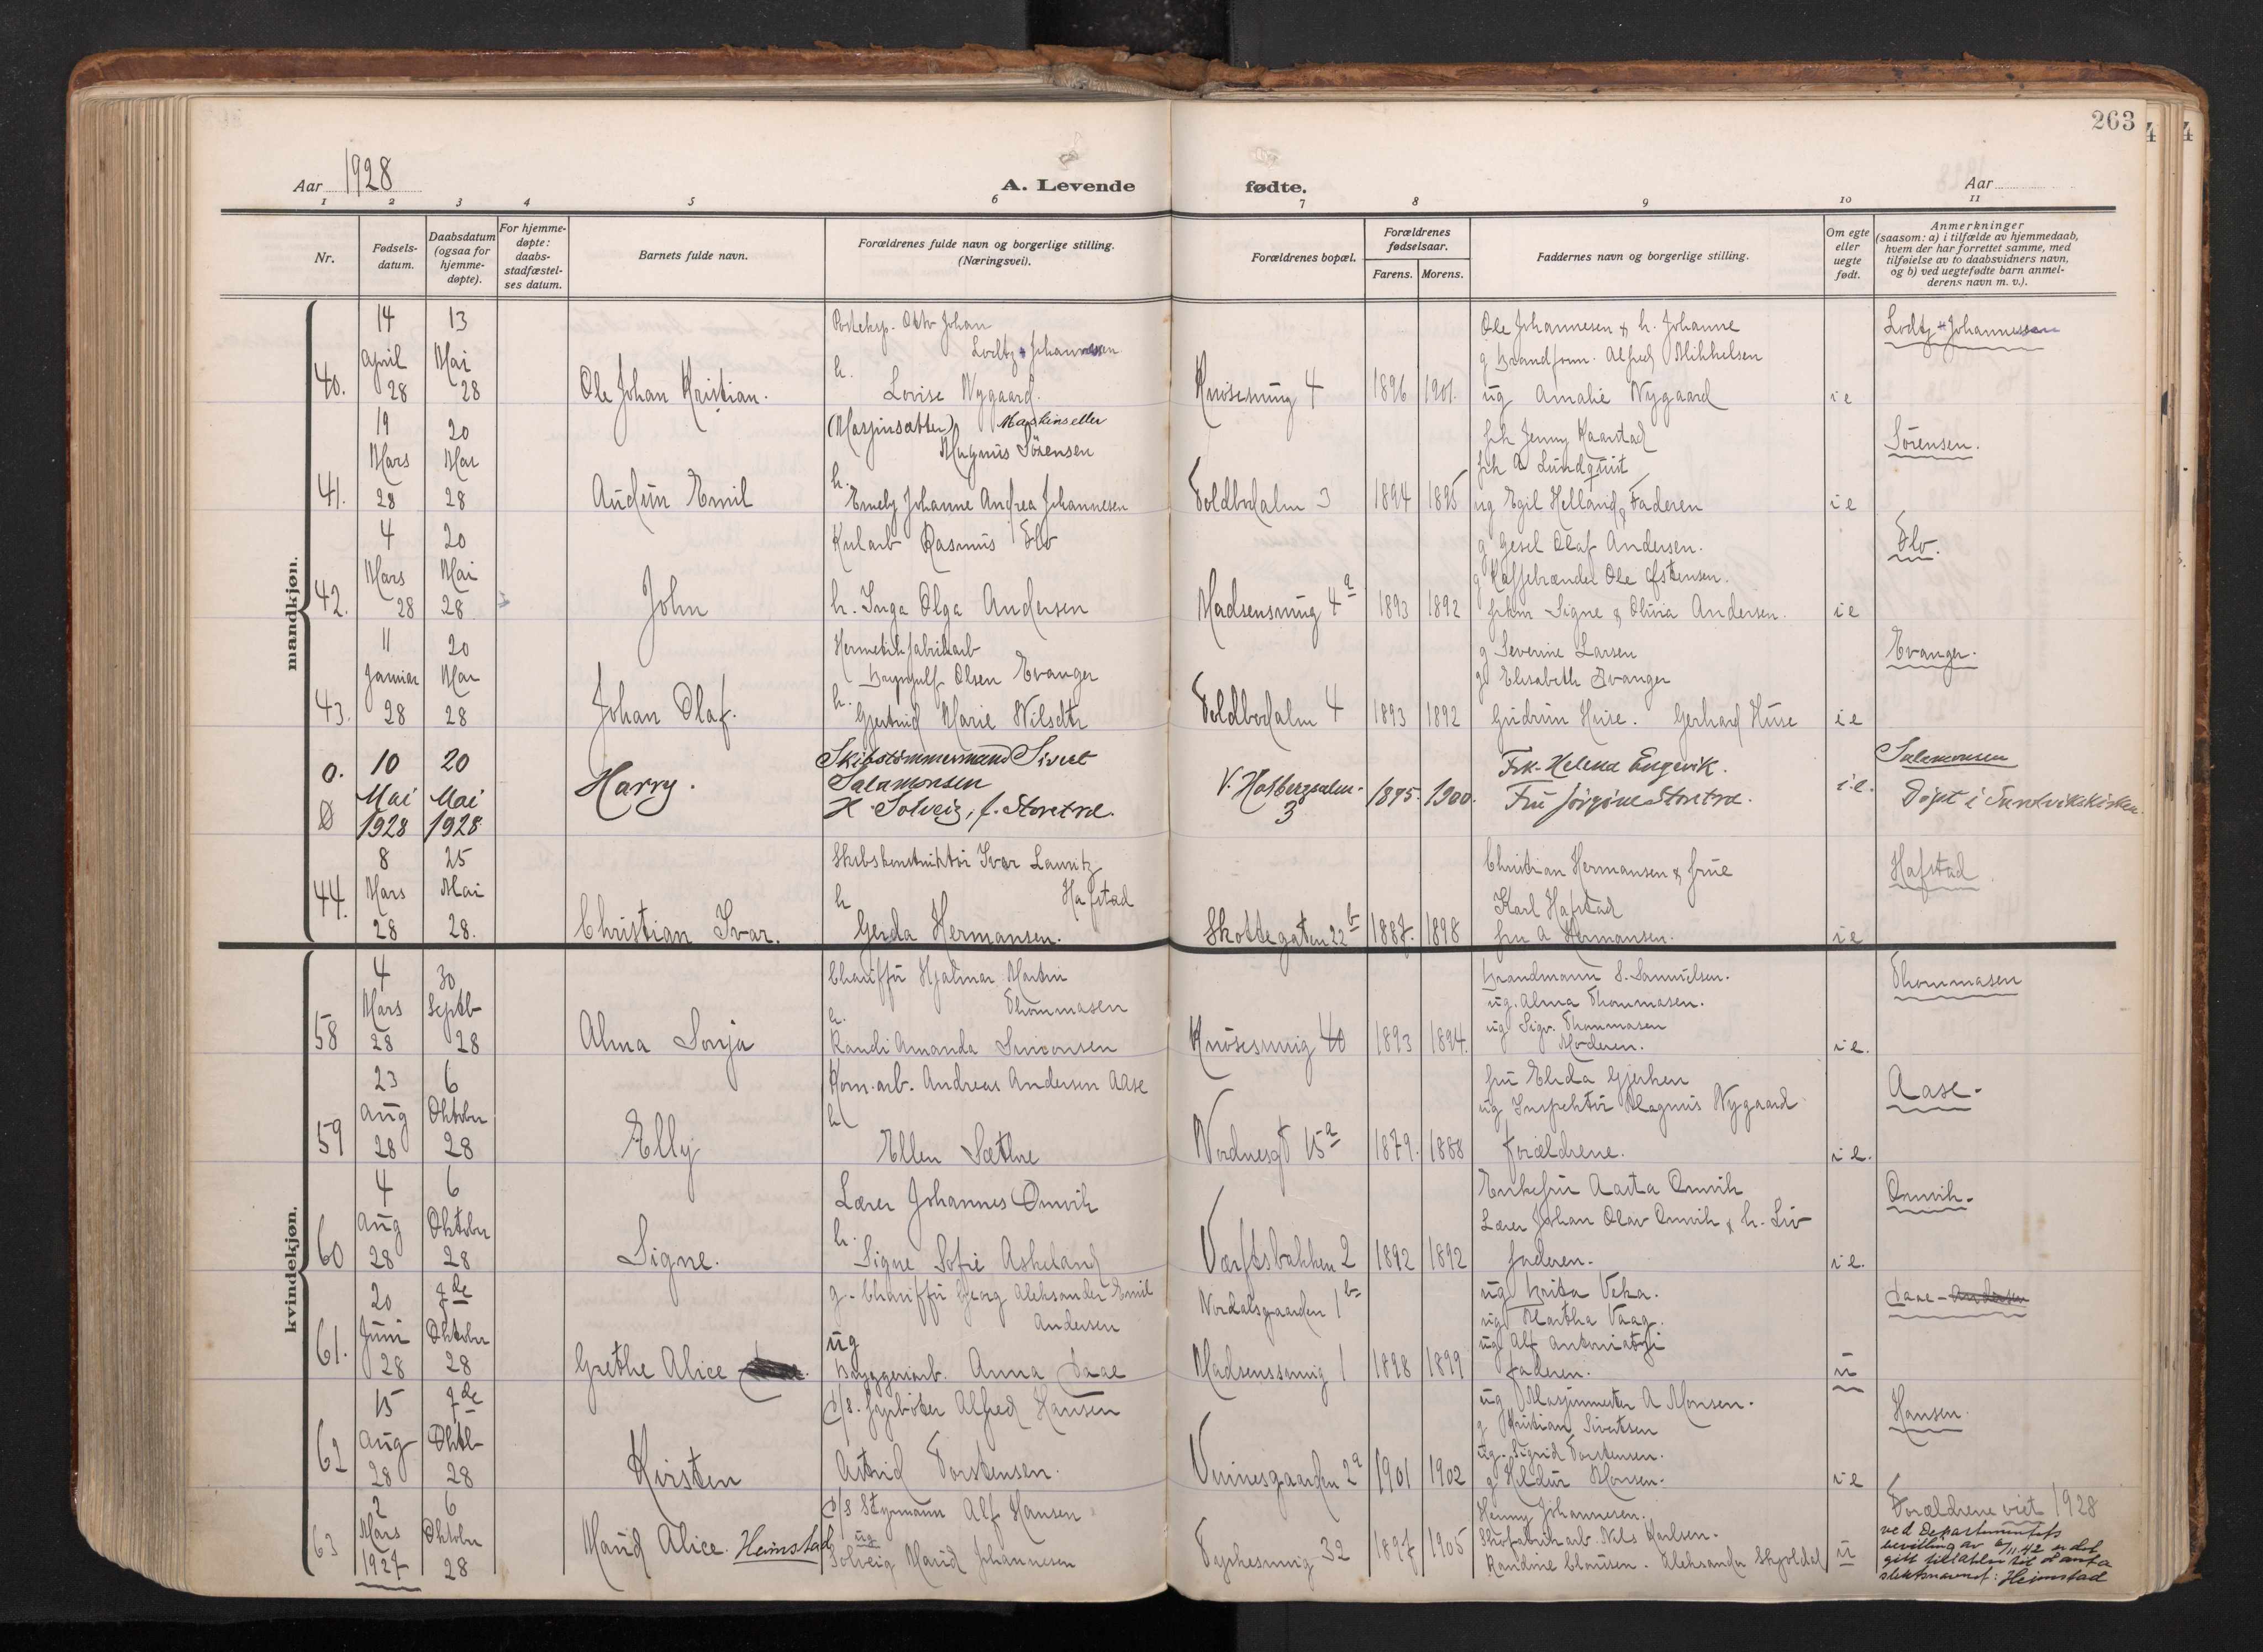 263
Aar 1928
A. Levende fødte.
Aar
1 2 3 4 5 6 7 8 9 10 11
Nr.
Fødsels-
datum.
Daabsdatum
(ogsaa for
hjemme-
døpte).
For hjemme-
døpte:
daabs-
stadfæstel-
ses datum.
Barnets fulde navn.
Forældrenes fulde navn og borgerlige stilling.
(Næringsvei).
Forældrenes bopæl.
Forældrenes
fødselsaar.
Farens. Morens.
Faddernes navn og borgerlige stilling.
Om egte
eller
uegte
født.
Anmerkninger
(saasom: a) i tilfælde av hjemmedaab,
hvem der har forrettet samme, med
tilføielse av to daabsvidners navn,
og b) ved uegtefødte barn anmel-
derens navn m. v.).
mandkjøn.
40.
14
April
28
13
Mai
28
Ole Johan Kristian.
Johan
Lodtz-Johannessen
h.
Lovise Nygaard.
Knøsesmug 4
1896 1901.
Ole Johannesen & h. Johanne
g Brandfonn. Alfred Mikkelsen
ug Amalie Nygaard
ie
Lodtz-Johannessen
41.
19
Mars
28
20
Mai
28
Audun Emil
(Masjinsætter) Maskinsetter
Magnus Sörensen
h.
Emely Johanne Andrea Johannesen
Toldbodalm 3
1894 1895
frk Jenny Kaarstad
frk A Lundquist
ug Egil Helland & Faderen
ie
Sörensen.
42.
4
Mars
28
20
Mai
28
John
Kularb Rasmus Flo
h. Inga Olga Andersen
Madsensmug 4a
1893 1892
g Gesel Olaf Andersen.
g Kaffebrænder Ole Estensen.
frkn Signe & Olivia Andersen.
ie
Flo.
43.
11
Januar
28
20
Mai
28
Johan Olaf.
Hermetikfabrikarb
Bryngulf Olsen Evanger
h.
Gjertrud Marie Nilsdtr
Toldbodalm 4
1893 1892
g Severine Larsen
g Elisabeth Evanger
Gudrun Huse. Gerhard Huse
ie
Evanger.
0.
10
Mai
1928
20
Mai
1928
Harry.
Skibstömmermand Sivert
Salamonsen
H. Solveig, f. Storetvæ.
V. Holbergsalm.
3
1895. 1900.
Frk. Helena Engevik.
Fru Jörgine Storetvæ.
i.e.
Salamonsen
Döpt i Sandvikskirken.
44.
8
Mars
28
25
Mai
28.
Christian Ivar.
Skibskonstruktör Ivar Lauritz
h Hafstad
Gerda Hermansen.
Skottegaten 22b
1887. 1898
Christian Hermansen & frue
Karl Hafstad
fru A Hermansen.
ie
Hafstad
kvindekjøn.
58
4
Mars
28
30
Septb
28
Alma Sonja
Chauffür Hjalmar Martin
h. Thommasen
Randi Amanda Simonsen
Knösesmug 40
1893 1894.
Brandmann S. Samuelsen.
ug. Alma Thommasen.
ug Sigv. Thommasen
Moderen.
i e.
Thommasen
59
23
Aug
28
6
Oktober
28
Elly
Kom. arb. Andreas Andersen Aase
h
Ellen Sæthre
Nordnesgt 15a
1879. 1888
fru Elida Gjerken
ug Inspektör Magnus Nygaard
forældrene.
i e.
Aase.
60
4
Aug
28
6
Oktober
28
Signe.
Lærer Johannes Onvik
h.
Signe Sofie Askeland
Verftsbakken 2
1892 1892
Enkefru Aasta Onvik
Lærer Johan Olav Onvik & h. Liv
faderen.
i e.
Onvik.
61.
20
Juni
28
7de
Oktober
28
Grethe Alice
g. Chauffür Georg Aleksander Emil
Andersen
ug
Bryggeriarb. Anna Daae
Nordalsgaarden 1b
Madsenssmug 1
1898 1899
ug Brita Veka.
ug Martha Vaag.
ug Alf
faderen.
u
Daae - Andersen
62
15
Aug
28
7de
Oktb
28
Kirsten
d/s. fyrböter Alfred Hansen
Astrid Torstensen.
Vinnesgaarden 2a
1901 1902
ug Masjinmester A Monsen.
g Kristian Sivertsen
ug. Sigrid Torstensen.
g Hildur Monsen.
ie
Hansen.
63
2
Mars
1927
6
Oktober
28
Maud Alice. Heimstad
d/s Styrmann Alf Hansen
ug
Solveig Maud Johannesen
Fyskesmug 32
1897 1905
Henny Johannesen.
Skofabrikarb. Nils Karlsen.
Randine Clausen. Aleksander Skjoldal
u
Forældrene viet 1928
ved Departementets
bevilling av 6/11.42 er det
gitt tillatelse til å anta
slektsnavnet: Heimstad